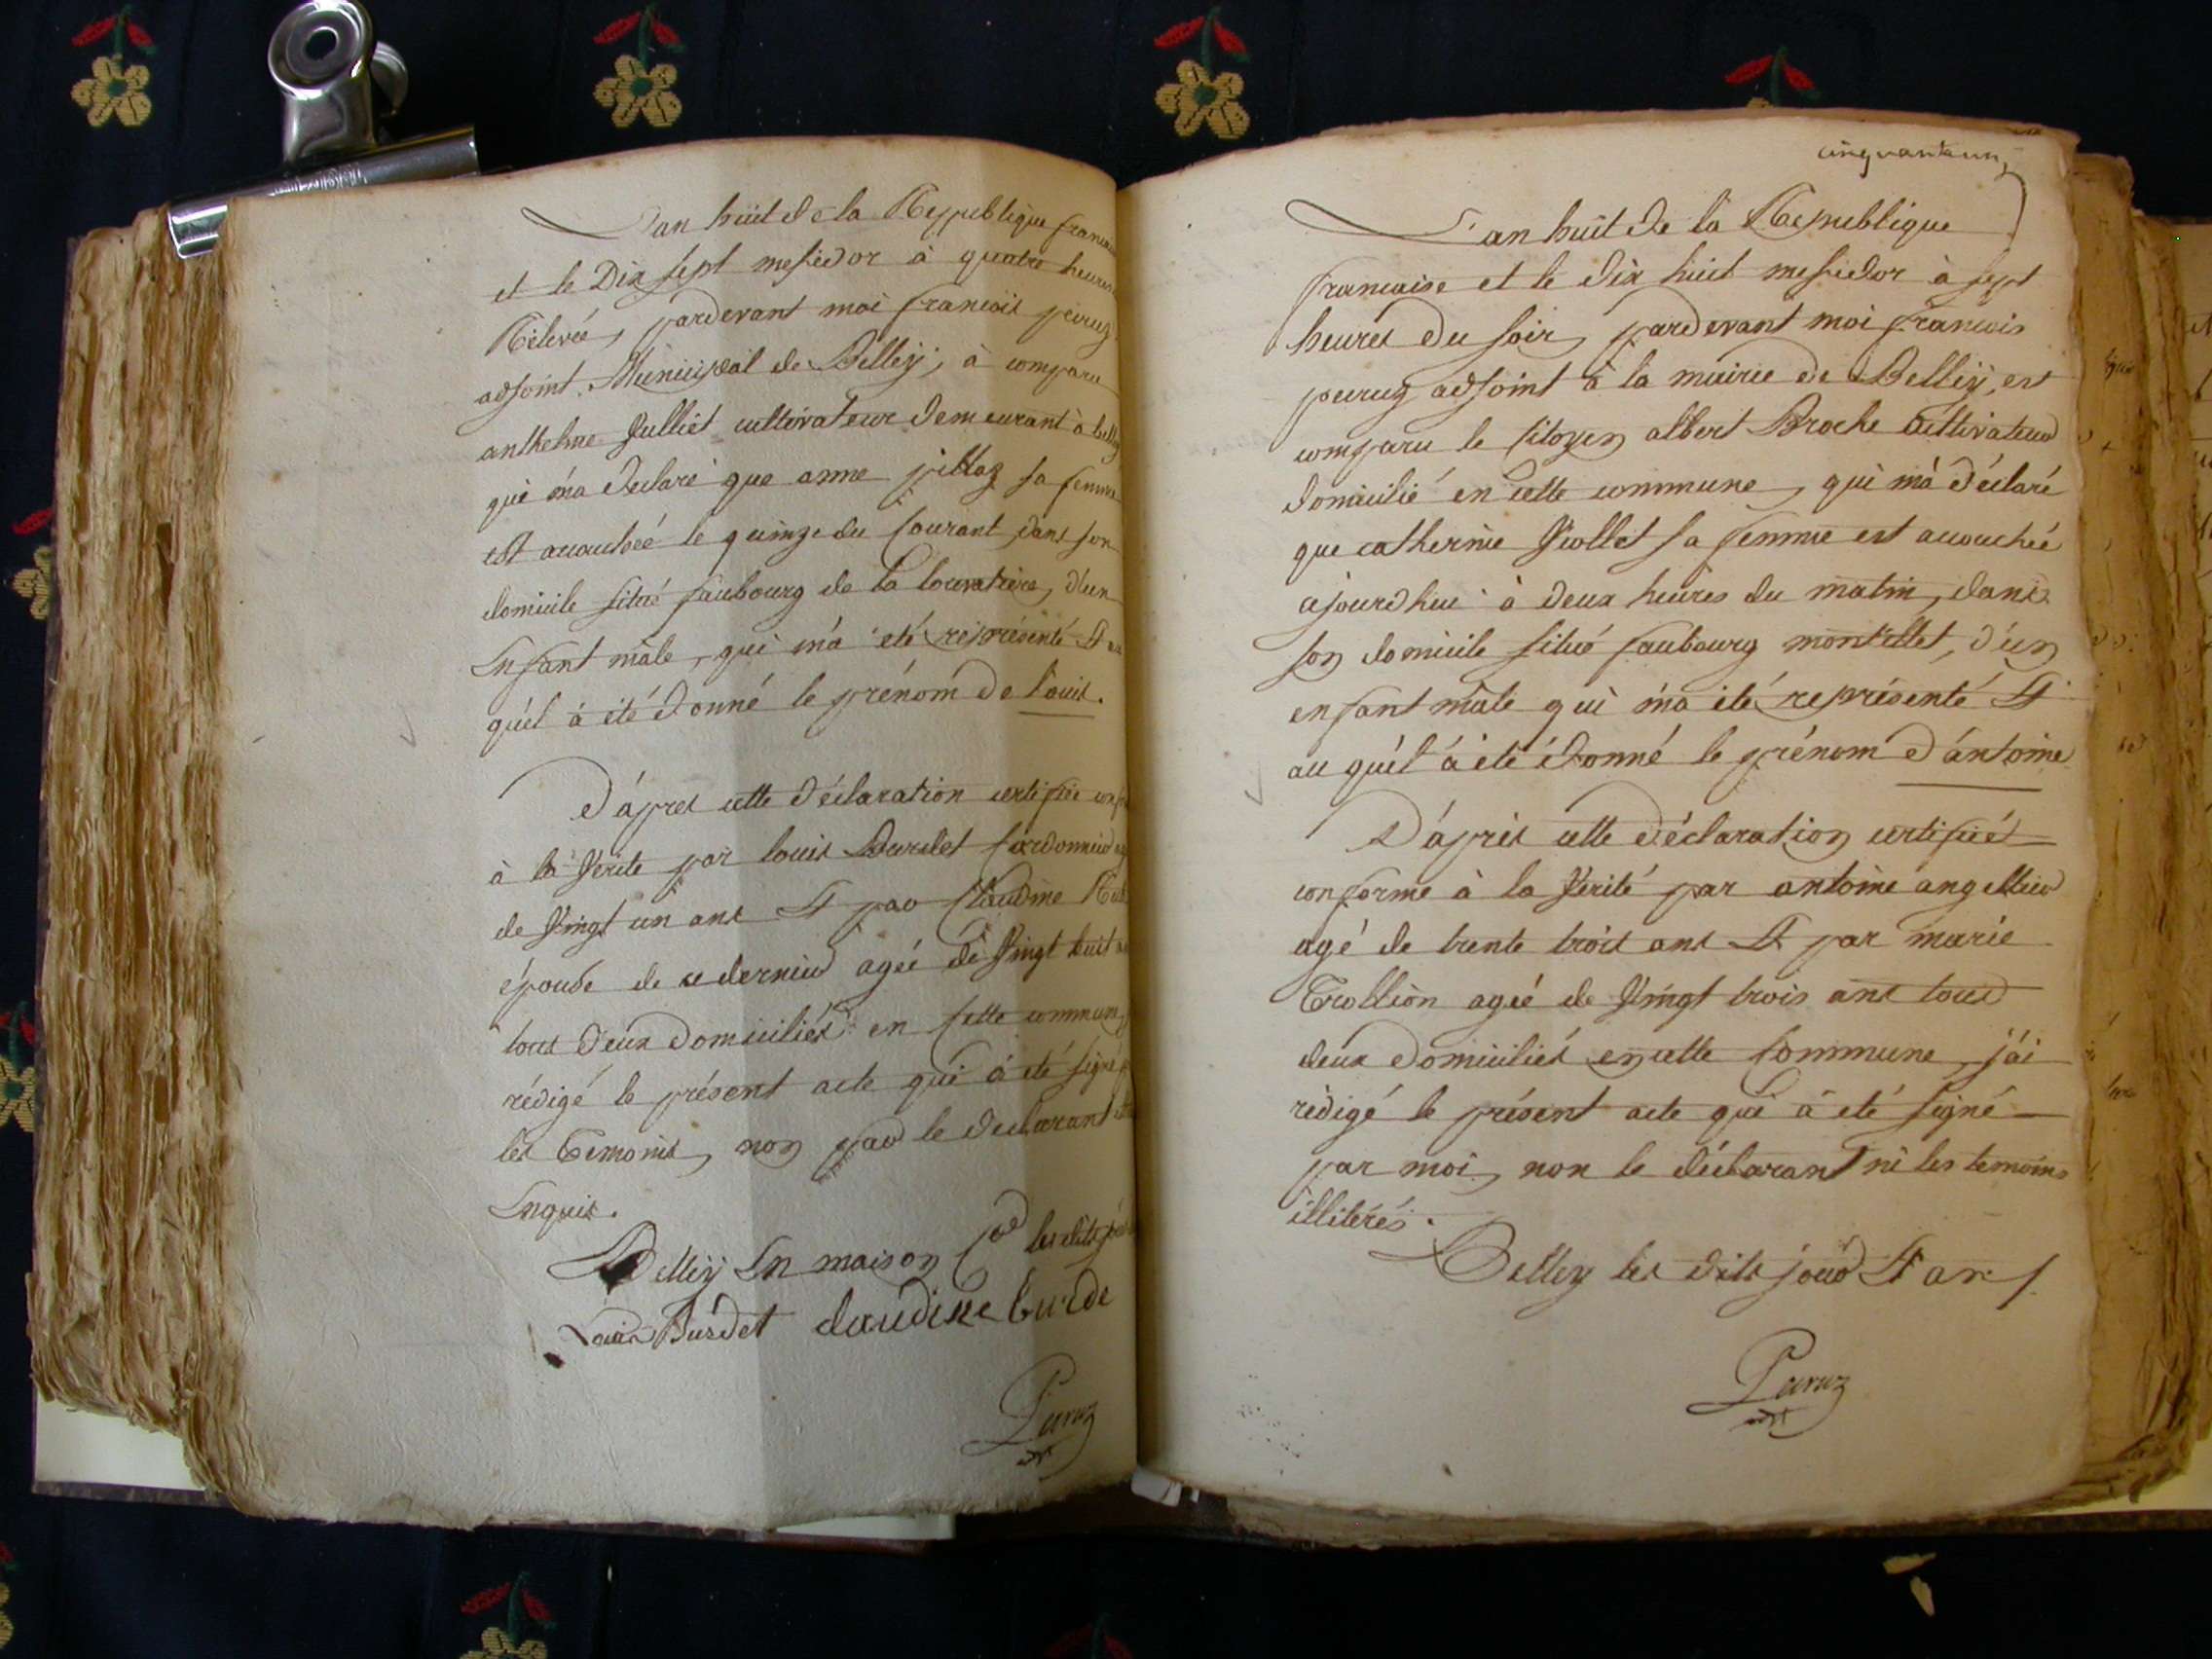 L'an huit de la Republique
et le Dix sept messidor à quatre heures
Relevée, pardevant moi francois peruz
adjoint Municipal de Belley, à comparu
anthelme Julliet cultivateur demeurant à
qui m'a déclaré que anne pillaz sa femme
est accouchée le quinze du Courant dans son
domicile situé faubourg de la louvatiere, d'un
Enfant mâle, qui m'a été représenté &
quel à été donné le prénom de Louis.
D'après cette déclaration certifiée
à la Verité par louis Burdet Cordonnier
de Vingt un ans & par Claudine
épouse de ce dernier agée de Vingt huit
tous deux domiciliés en Cette commune
rédigé le présent acte qui à été signé
les Temoins, non par le declarant
Enquis.
Belley En maison les dits
Louis Burdet claudine burde
Peruz
adjt
cinquanteun,
L'an huit de la Republique
francaise et le dix huit messidor à sept
heures du soir, pardevant moi francois
peruz adjoint à la mairie de Belley, est
comparu le Citoyen albert Broche Cultivateur
domicilié en cette commune, qui m'à déclaré
que catherine Viollet sa femme est acouchée
ajourdhui à deux heures du matin, dans
son domicile situé faubourg montillet, d'un
enfant mâle qui m'a été représenté &
au quel à été donné le prénom d'antoine
D'après cette déclaration certifiée
conforme à la Verité par antoine angellier
agé de trente trois ans & par marie
Trollion agée de Vingt trois ans tous
deux domiciliés en cette Commune, j'ai
rédigé le présent acte qui à été signé
par moi, non le déclarant ni les temoins
illiterés.
Belley les dits jour & an
Peruz
adjt